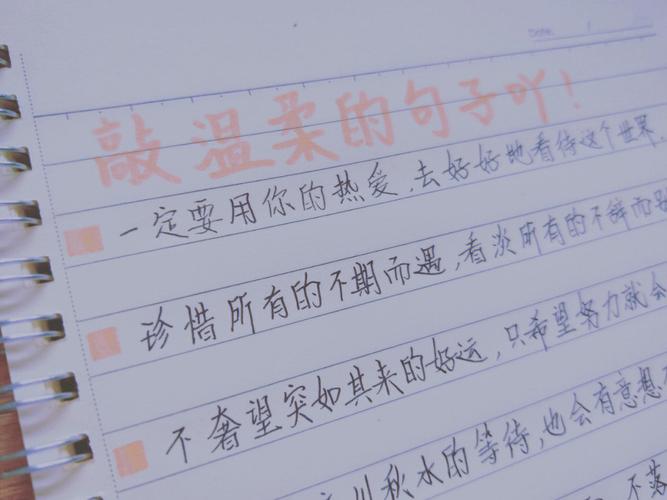 Date
敲温柔的句子吖!
一定要用你的热爱,去好好地看待这个世界.
珍惜所有的不期而遇,看淡所有的不辞而别
不奢望突如其来的好运,只希望努力就会
川秋水的等待,也会有意想
不落